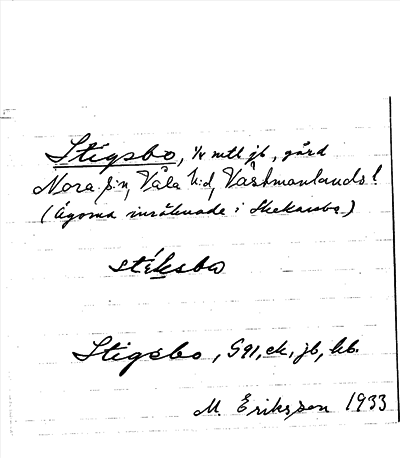 Stigsbo, 1/4 mtl jb, gård
Nora s:n, Våla h:d, Västmanlands l.
(Ägorna inräknade i Skekarsbo)
stíksbo
Stigsbo, G91, ek, jb, kb.
M. Eriksson 1933